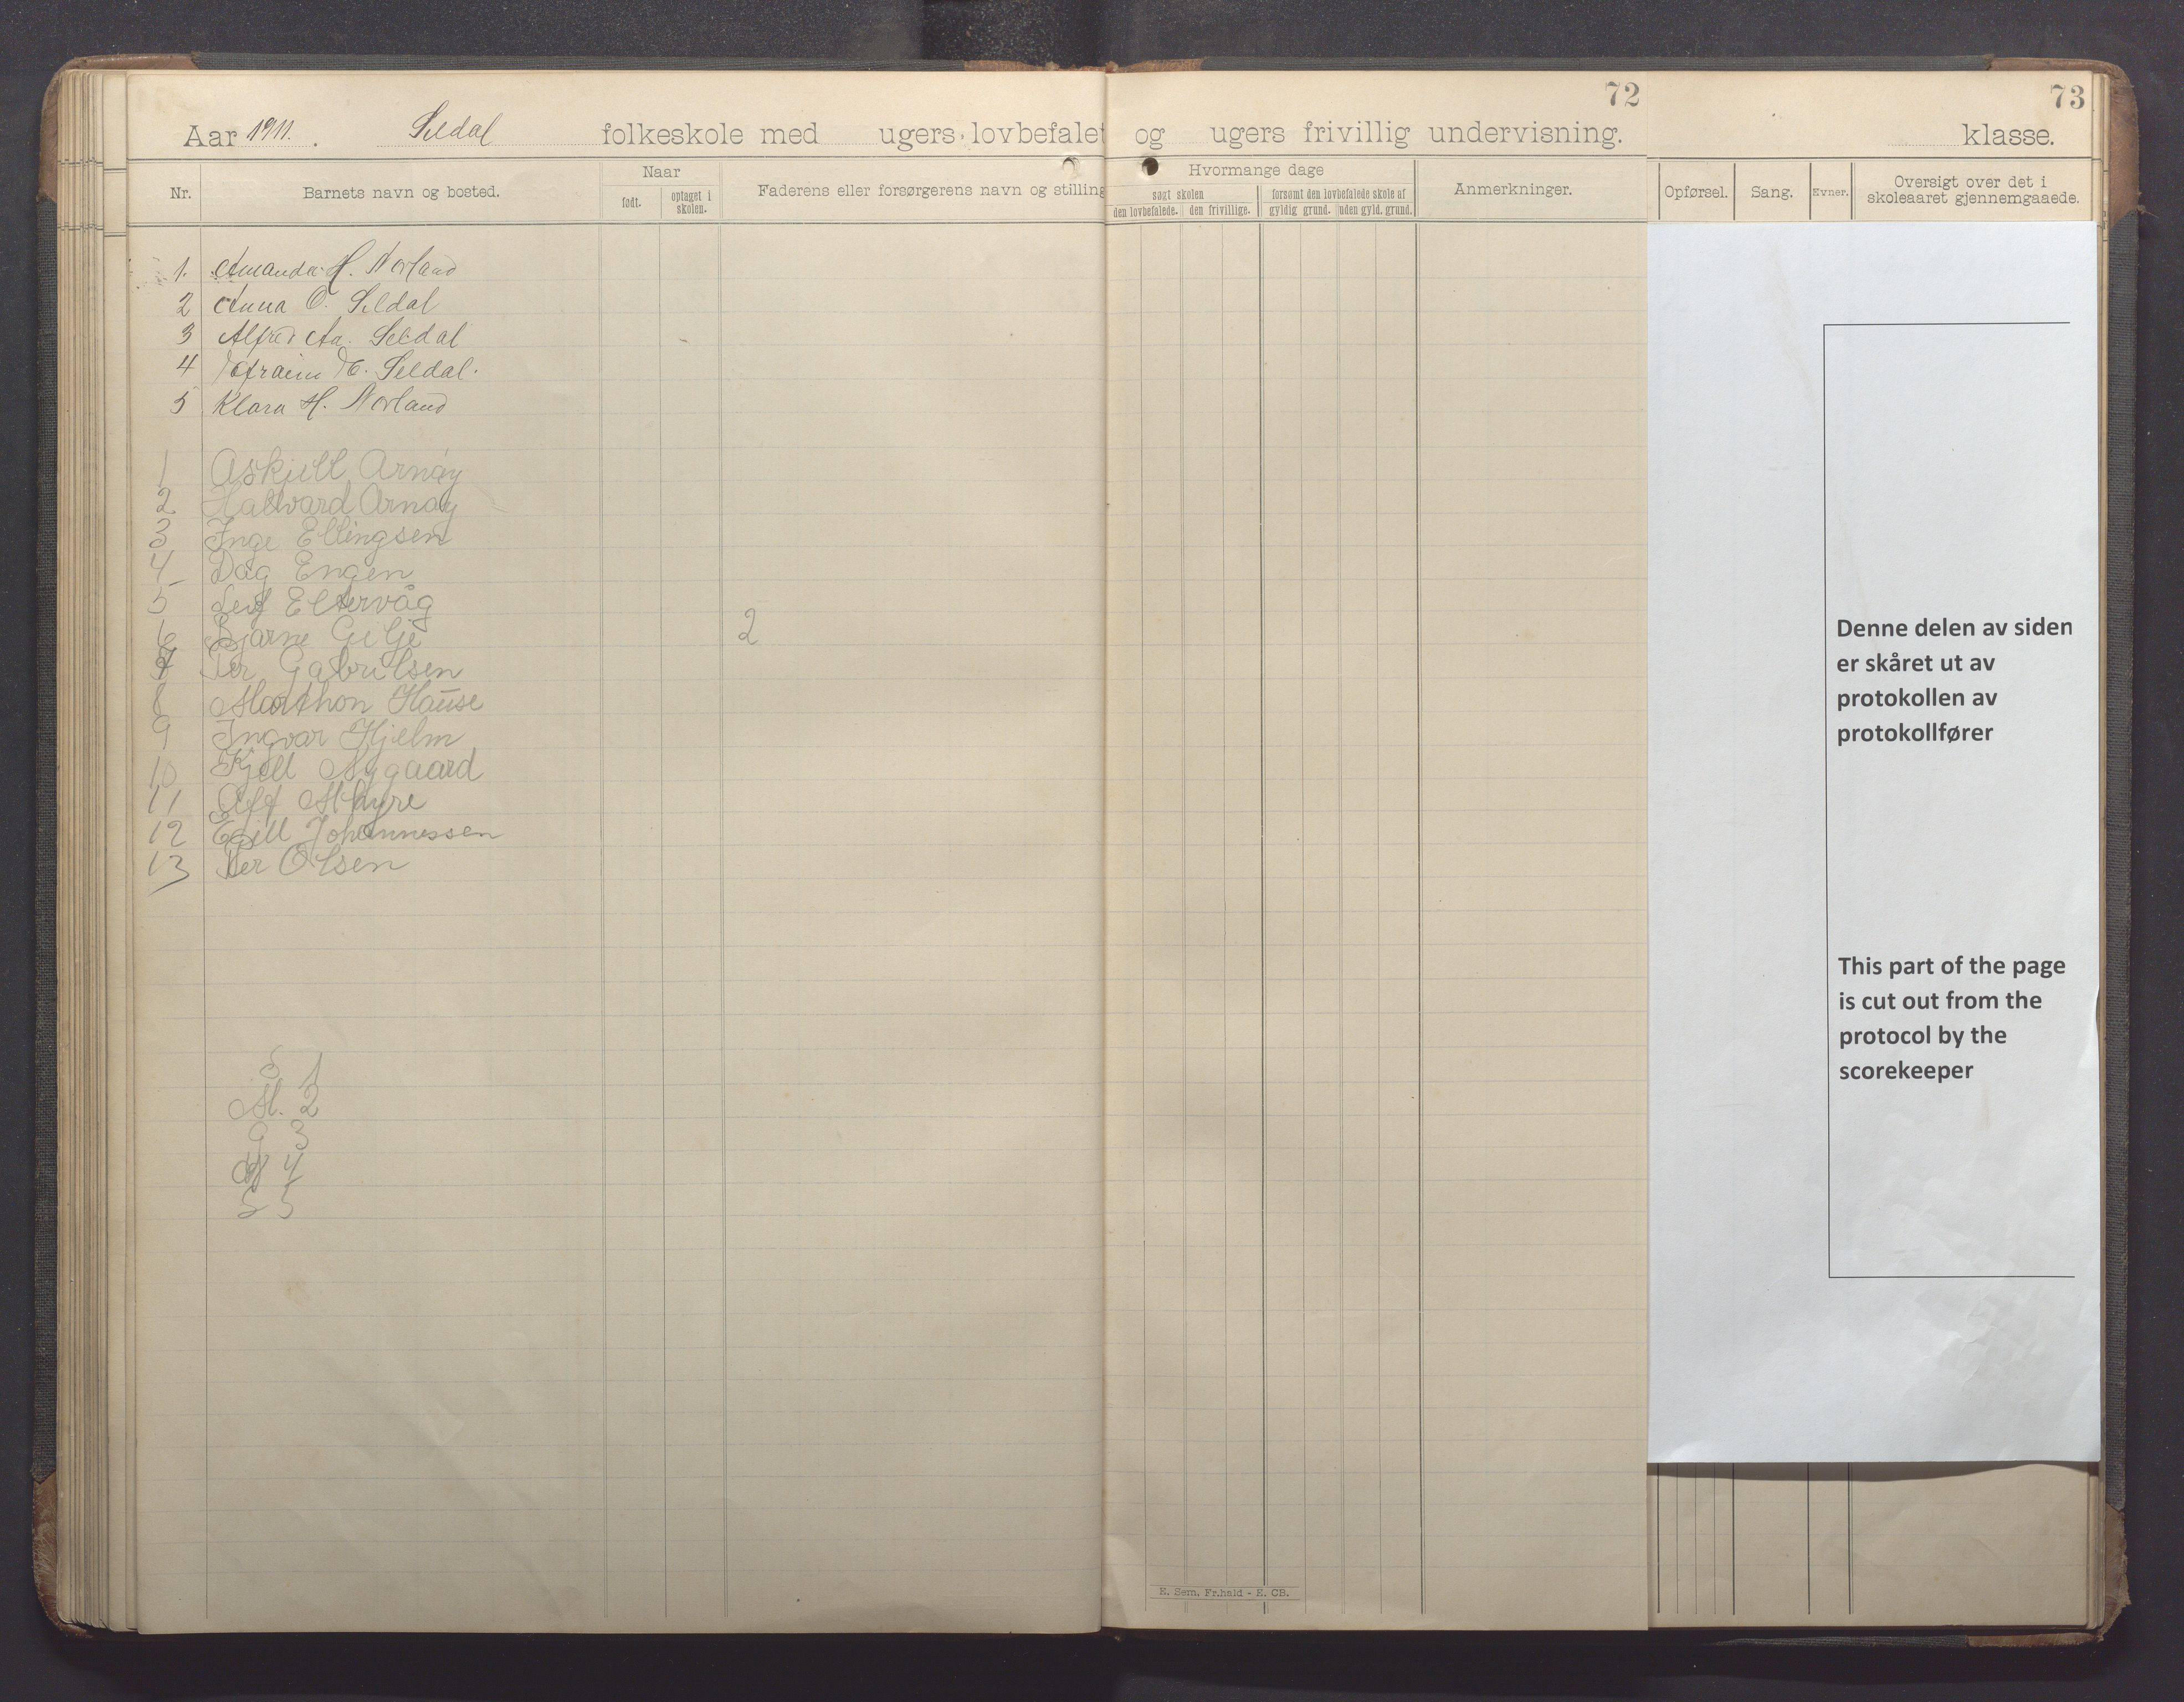 72
73
Aar 1911. Seldal folkeskole med ugers lovbefalet og ugers frivillig undervisning. klasse.
Nr. Barnets navn og bosted. Naar født. optaget i skolen. Faderens eller forsørgerens navn og stilling Hvormange dage søgt skolen den lovbefalede. den frivillige. forsømt den lovbefalede skole af gyldig grund. uden gyld. grund. Anmerkninger. Opførsel. Sang. Evner. Oversigt over det i skoleaaret gjennemgaaede.
1. Amanda H. Norland
2 Anna O. Seldal
3 Alfred Aa. Seldal
4 Efraim E. Seldal.
5 Klara H. Norland
1 Askjell Arnøy
2 Hallvard Arnøy
3 Inge Ellingsen
4 Dag Engen
5 Leif Eltervåg
6 Bjarne Gilje 2
7 Per Gabrilsen
8 Marthon Hause
9 Ingvar Hjelm
10 Kjell Nygaard
11 Alf Myre
12 Egill Johannessen
13 Per Olsen
1
M. 2
9 3
4
S 5
Denne delen av siden
er skåret ut av
protokollen av
protokollfører
This part of the page
is cut out from the
protocol by the
scorekeeper
E. Sem. Fr.hald - E. CB.